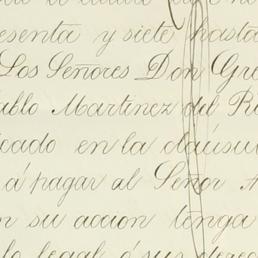 esenta y siete hasta
Los Señores Don Gre
ablo Martinez del R
icado en la cláusul
á pagar al Señor
n su accion tenga
lo legal ó sus derec